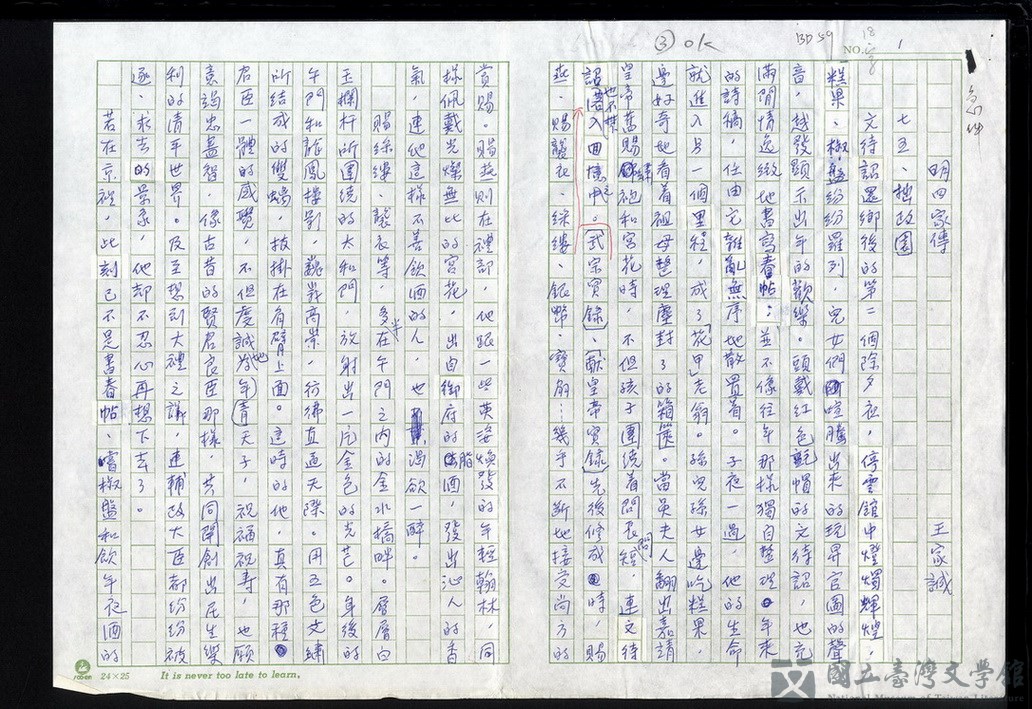 ③ OK
BD59
18字
NO. 1
急件
明四家傳
王家誠
七五、拙政園
文待詔還鄉後的第二個除夕夜，停雲館中燈燭輝煌，
糕果、椒盤紛紛羅列，兒女們喧騰出來的玩昇官圖的聲
音，越發顯示出年的歡樂。頭戴紅色氈帽的文待詔，也充
滿閒情逸緻地書寫春帖；並不像往年那樣獨自整理年來
的詩稿，任由它雜亂無序地散置着。子夜一過，他的生命
就進入另一個里程，成了「花甲」老翁。孫兒孫女邊吃糕果，
邊好奇地看着祖母整理塵封了的箱篋。當吳夫人翻出嘉靖
皇帝舊賜綵袍和宮花時，不但孩子團繞着問長問短，連文待
詔也不禁墜入回憶中。武宗實錄、獻皇帝實錄先後修成時，賜
燕、賜襲衣、綵縷、銀幣、寶鈔…幾乎不斷地接受尚方的
賞賜。賜燕則在禮部，他跟一些英姿煥發的年輕翰林，同
樣佩戴光燦無比的宮花，出自御府的酒，發出沁人的香
氣，連他這樣不善飲酒的人，也渴欲一醉。
賜綵縷、襲衣等，多半在午門之內的金水橋畔。層層白
玉欄杆所圍繞的大和門，放射出一片金色的光芒。身後的
午門和龍鳳樓影，巍峩高崇，彷彿直逼天際。用五色艾繡
所結成的雙螭，披掛在肩臂上面。這時的他，真有那種
君臣一體的感覺，不但虔誠地為年青天子，祝福祝壽，也願
意竭忠盡智，像古昔的賢君良臣那樣，共同開創出民生樂
利的清平世界。及至想到大禮之議，連輔政大臣都紛紛被
逐、求去的景象，他却不忍心再想下去了。
若在京裡，此刻已不是書春帖、嚐椒盤和飲年夜酒的
24×25
It is never too late to learn.
國立臺灣文學館
National Museum of Taiwan Literature